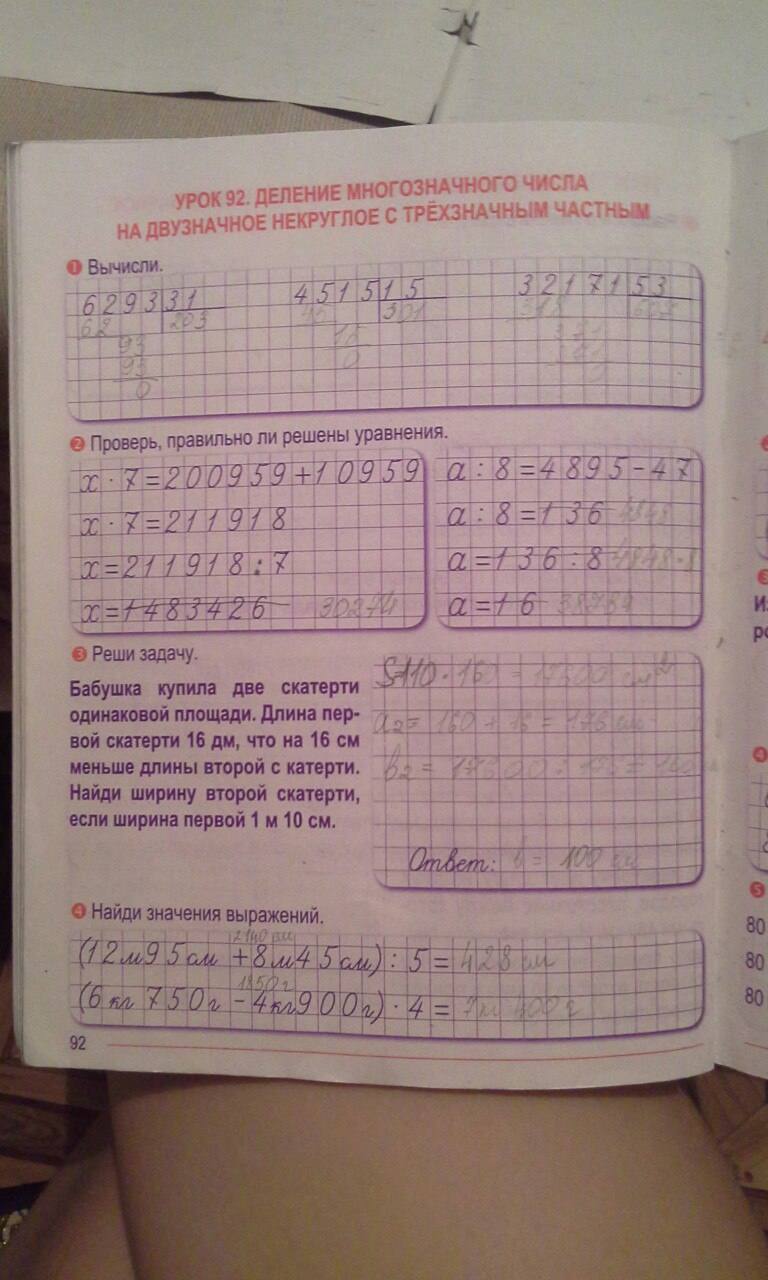 УРОК 92. ДЕЛЕНИЕ МНОГОЗНАЧНОГО ЧИСЛА
НА ДВУЗНАЧНОЕ НЕКРУГЛОЕ С ТРЁХЗНАЧНЫМ ЧАСТНЫМ
1 Вычисли.
6293 31 4515 15 32171 53
62 203 45 301 318 607
93 15 371
93 0 371
0 0
2 Проверь, правильно ли решены уравнения.
x · 7 = 200959 + 10959
x · 7 = 211918
x = 211918 : 7
x = 1483426 30274
a : 8 = 4895 - 47
a : 8 = 136 4848
a = 136 : 8 4848 · 8
a = 16 38784
3 Реши задачу.
Бабушка купила две скатерти
одинаковой площади. Длина пер-
вой скатерти 16 дм, что на 16 см
меньше длины второй с катерти.
Найди ширину второй скатерти,
если ширина первой 1 м 10 см.
S=110 · 160 = 17600 см²
a₂ = 160 + 16 = 176 см
b₂ = 17600 : 176 = 100 см
Ответ: b = 100 см
4 Найди значения выражений.
2140 см
(12м95см + 8м45см) : 5 = 428 см
1850 г
(6кг 750г - 4кг900г) · 4 = 7кг 400 г
92
80
80
80